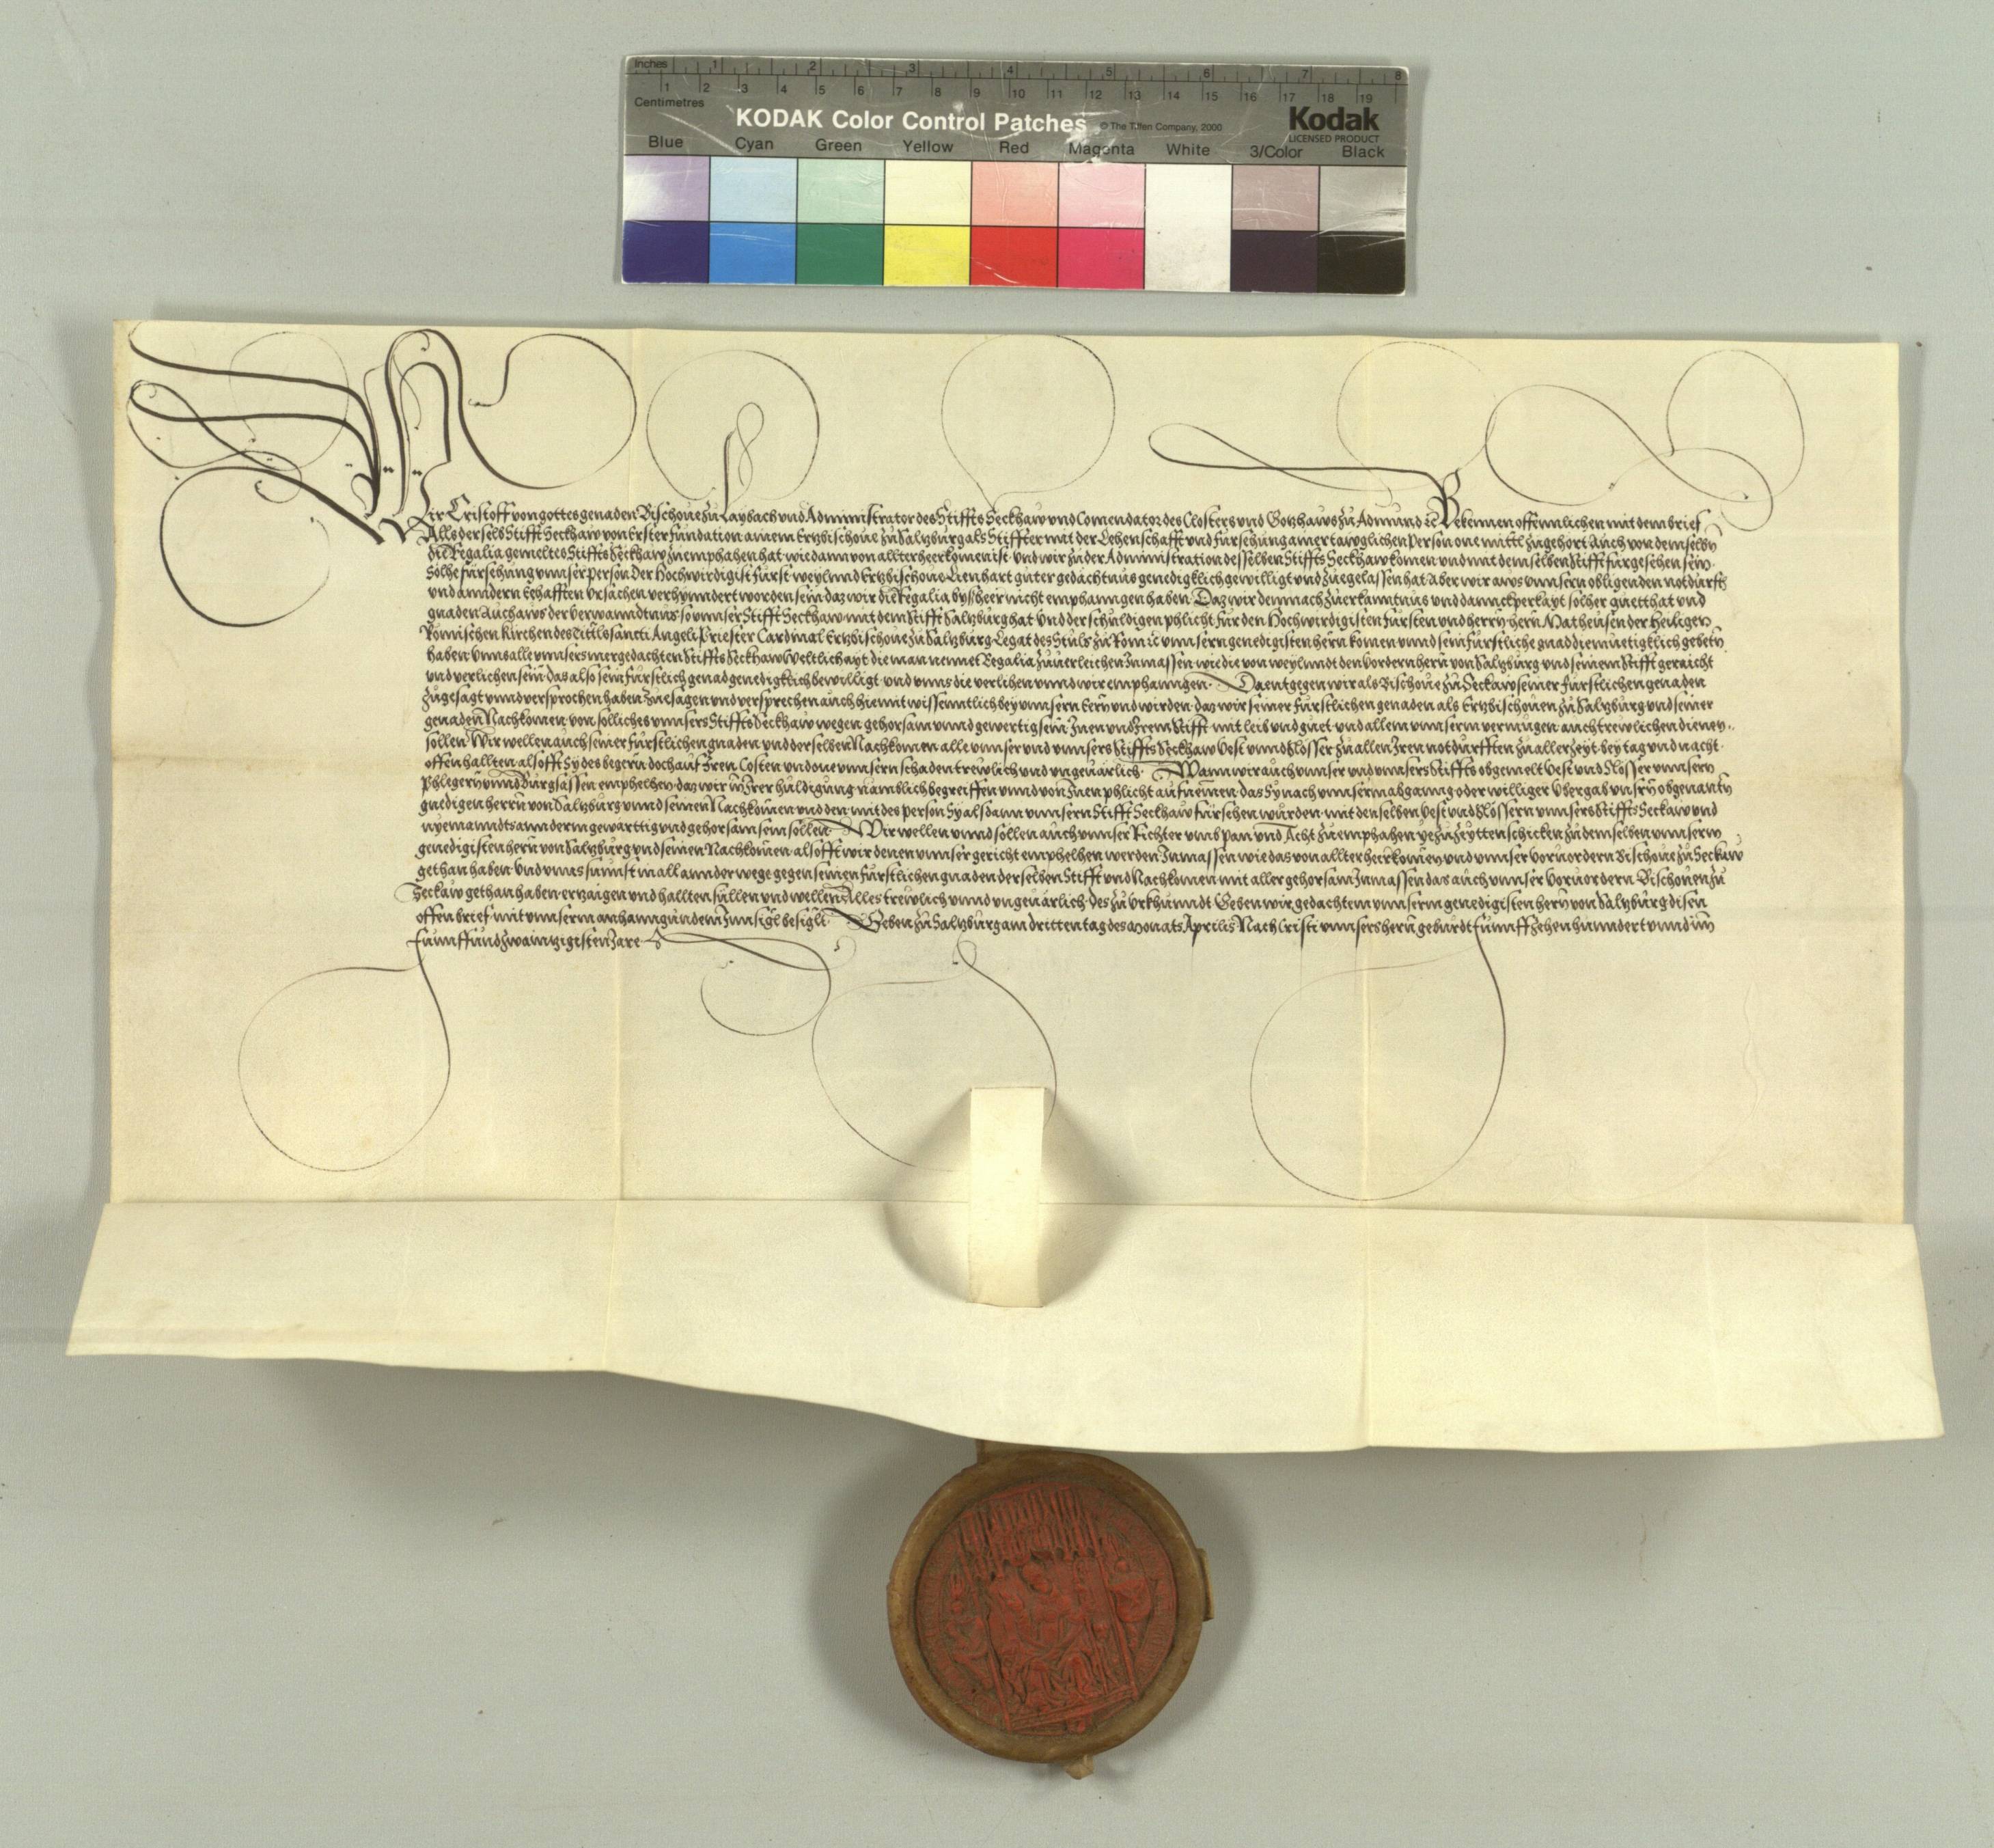 Inches 1 2 3 4 5 6 7 8
Centimetres 1 2 3 4 5 6 7 8 9 10 11 12 13 14 15 16 17 18 19
KODAK Color Control Patches © The Tiffen Company, 2000 Kodak
LICENSED PRODUCT
Blue Cyan Green Yellow Red Magenta White 3/Color Black
Wir Cristoff von gottes genaden Bischoue zu Laybach vnd Administrator des Stiffts Seckhaw vnd Comendator des Closters vnd Gotzhaws zu Admund ꝛc Bekennen offennlichen mit dem brief
Alls der selb Stifft Seckhaw von Erster Fundation ainem Ertzbischoue zu Saltzburg als Stiffter mit der Lehenschafft vnd fursehung ainer tawglichen Person one mittl zugehort Auch von demselbn
die Regalia gemeltes Stiffts Seckhaw zu emphahen hat wie dann von allter heerkomen ist vnd wir zu der Administration desselben Stiffts Seckhaw komen vnd mit demselben Stifft furgesehen sein.
Solhe fursehung vnnser Person der Hochwirdigist Furst weylund Ertzbischoue Lienhart guter gedachtnus genedigklich gewilligt vnd zuegelassen hat Aber wir aws vnnsern obligenden notdurfft
vnd anndern Eehafften vrsachen verhynndert worden sein daz wir die Regalia byssheer nicht emphanngen haben Daz wir demnach zu erkanntnus vnd dannckperkayt solher guetthat vnd
gnaden Auch aws der verwanndtnus so vnnser Stifft Seckhaw mit dem Stifft Saltzburg hat vnd der schuldigen phlicht fur den Hochwirdigisten Fursten vnd herrn hern Matheusen der Heiligen
Römischen Kirchen des Titls sancti Angeli Priester Cardinal Ertzbischoue zu Saltzburg Legat des Stuls zu Rom ꝛc vnnsern genedigisten hern komen vnnd sein Furstliche gnad diemuetigklich gebetn
haben vnns alle vnnsers mergedachten Stiffts Seckhaw Weltlichayt die man nennet Regalia zuuerleichen Inmassen wie die von weylundt den vordern hern von Saltzburg vnd seinem Stifft geraicht
vnd verlichen sein das also sein furstlich genad genedigklich bewilligt vnd vnns die verlihen vnnd wir emphanngen. Da entgegen wir als Bischoue zu Seckaw seiner furstlichen genaden
zugesagt vnnd versprochen haben zuesagen vnd versprechen auch hiemit wissenntlich bey vnnsern Ern vnd wirden daz wir seiner furstlichen genaden als Ertzbischouen zu Saltzburg vnd seiner
genaden Nachkomen von solliches vnnsers Stiffts Seckhaw wegen gehorsam vnnd gewertig sein Inen vnd Irem Stifft mit leib vnd guet vnd allem vnnserm vermugen auch trewlichen dienen.
sollen Wir wellen auch seiner furstlichen gnaden vnd derselben Nachkomen alle vnnser vnd vnnsers Stiffts Seckhaw Vest vnnd Slosser zu allen Iren notdurfften zu aller zeyt bey tag vnd nacht
offen hallten als offt sy des begern doch auf Iren Costen vnd one vnnsern schaden trewlich vnd vngeuarlich. Wann wir auch vnnser vnd vnnsers Stiffts obgemelt Vest vnd Slosser vnnsern
Phlegern vnnd Burgsassen emphelhen daz wir in Irer huldigung namblich begreiffen vnnd von Inen phlicht aufnemen das Sy nach vnnserm abganng oder williger Vbergab vnsern obgenantn
gnedigen herrn von Saltzburg vnnd seinen Nachkomen vnd den mit des person Sy alsdann vnnsern Stifft Seckhaw fursehen wurden mit denselben Vest vnd Slossern vnnsers Stiffts Seckaw vnd
nyemanndts anndern gewarttig vnd gehorsam sein sollen Wir wellen vnnd sollen auch vnnser Richter vmb Pan vnd Acht zu emphahen ye zu zeytten schicken zu demselben vnnserm
genedigisten hern von Saltzburg vnd seinen Nachkomen als offt wir denen vnnser gericht emphelhen werden Inmassen wie das von allter heerkomen vnd vnnser Voruordern Bischoue zu Seckaw
gethan haben Vnd vnns sunnst in all annder wege gegen seinen furstlichen gnaden derselben Stifft vnd Nachkomen mit aller gehorsam Inmassen das auch vnnser Voruordern Bischouen zu
Seckaw gethan haben erzaigen vnd hallten sullen vnd wellen Alles trewlich vnnd vngeuarlich des zu Vrkhunndt Geben wir gedachtem vnnserm genedigisten hern von Saltzburg disen
offen brief mit vnnserm anhanngunden Innsigl besiglt Geben zu Saltzburg am dritten tag des Monats Aprilis Nach Cristi vnnsers hern geburdt funnffzehenhunndert vnnd im
funnffundzwaintzigisten Jare